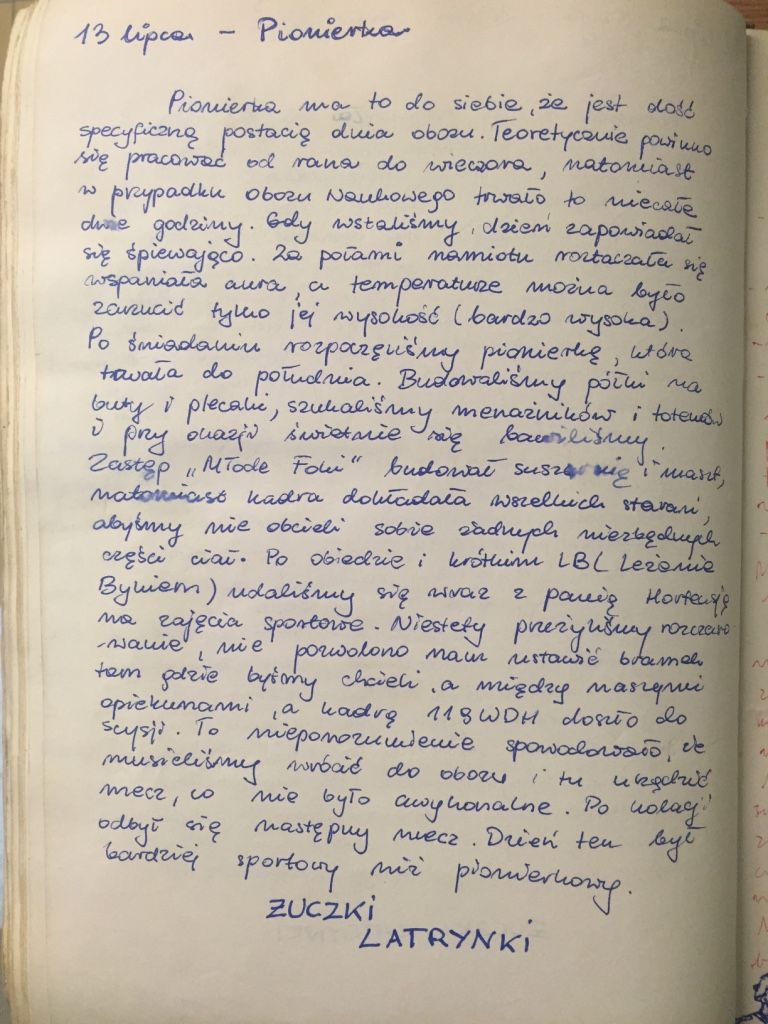 13 lipca - Pionierka
Pionierka ma to do siebie, że jest dość
specyficzną postacią dnia obozu. Teoretycznie powinno
się pracować od rana do wieczora, natomiast
w przypadku obozu Naukowego trwało to niecałe
dwie godziny. Gdy wstaliśmy, dzień zapowiadał
się śpiewająco. Za połami namiotu roztaczała się
wspaniała aura, a temperaturze można było
zarzucić tylko jej wysokość (bardzo wysoka).
Po śniadaniu rozpoczęliśmy pionierkę, która
trwała do południa. Budowaliśmy półki na
buty i plecaki, szukaliśmy menażników i totemów
i przy okazji świetnie się bawiliśmy.
Zastęp "Młode Foki" budował suszarnię i maszt,
natomiast kadra dokładała wszelkich starań,
abyśmy nie obcieli sobie żadnych niezbędnych
części ciał. Po obiedzie i krótkim LB (Leżenie
Bykiem) udaliśmy się wraz z panią Hortensją
na zajęcia sportowe. Niestety przeżyliśmy rozczaro-
-wanie, nie pozwolono nam ustawić bramek
tam gdzie byśmy chcieli, a między naszymi
opiekunami, a kadrą 119 WDH doszło do
scysji. To nieporozumienie spowodowało, że
musieliśmy wrócić do obozu i tu urządzić
mecz, co nie było awykonalne. Po kolacji
odbył się następny mecz. Dzień ten był
bardziej sportowy niż pionierkowy.
ŻUCZKI
LATRYNKI